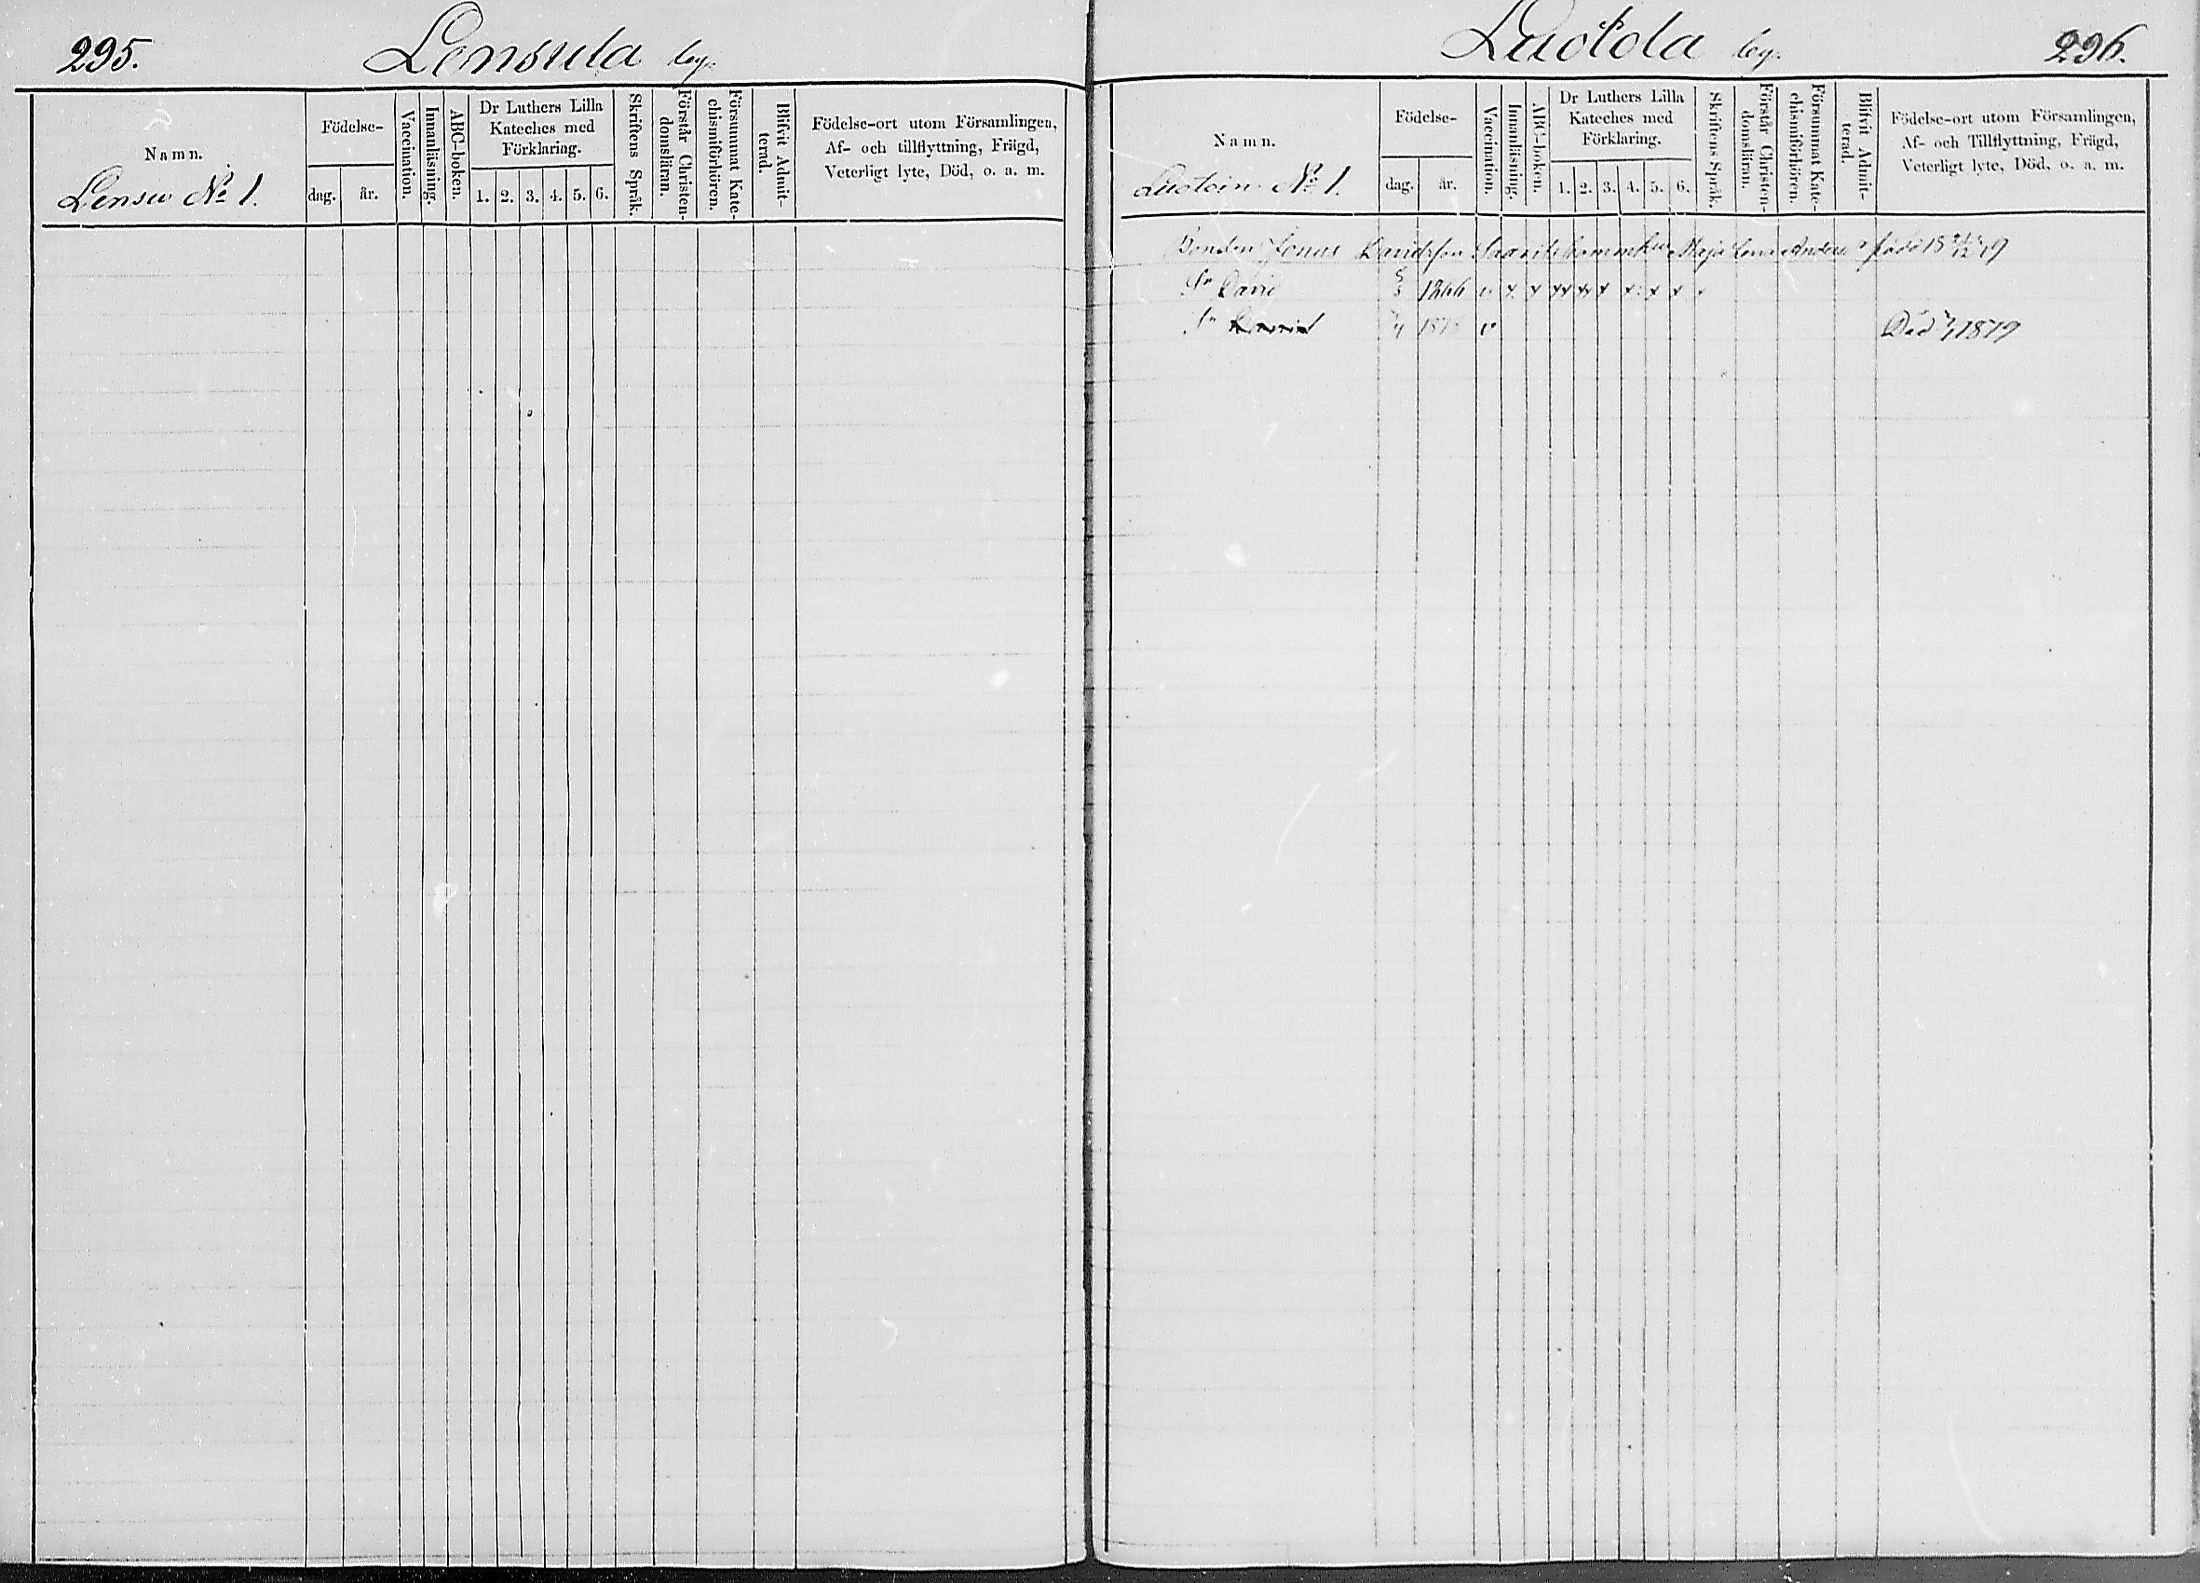 295.
Lensula by.
Namn.
Lensu No 1.
Födelse-
dag.
år.
Vaccination.
Innanläsning.
ABC-boken.
Dr Luthers Lilla
Kateches med
Förklaring.
1. 2. 3. 4. 5. 6.
Skriftens Språk.
Förstår Christen-
domsläran.
Försummat Kate-
chismiförhören.
Blifvit Admit-
terad.
Födelse-ort utom Församlingen,
Af- och tillflyttning, Frägd,
Veterligt lyte, Död, o. a. m.
Luotola by.
296.
Namn.
Luotoin No 1.
Födelse-
dag.
år.
Vaccination.
Innanläsning.
ABC-boken.
Dr Luthers Lilla
Kateches med
Förklaring.
1. 2. 3. 4. 5. 6.
Skriftens Språk.
Förstår Christen-
domsläran.
Försummat Kate-
chismiförhören.
Blifvit Admit-
terad.
Födelse-ort utom Församlingen,
Af- och Tillflyttning, Frägd,
Veterligt lyte, Död, o. a. m.
Bonden Jonas Davidsson Maja
Sn David 1866 v x x xx xx x x x x
Sn v Död 1879